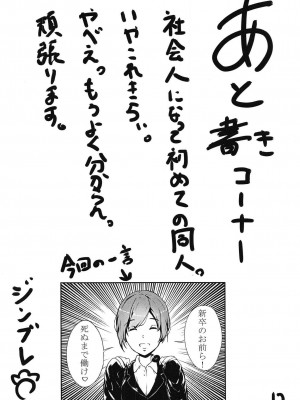 あと書きコーナー
社会人になって初めての同人。
いやこれきらい。
やべえっもうよく分からん。
頑張ります。
今回の一言
新卒のお前ら!
死ぬまで働け♡
ジンブレ
12